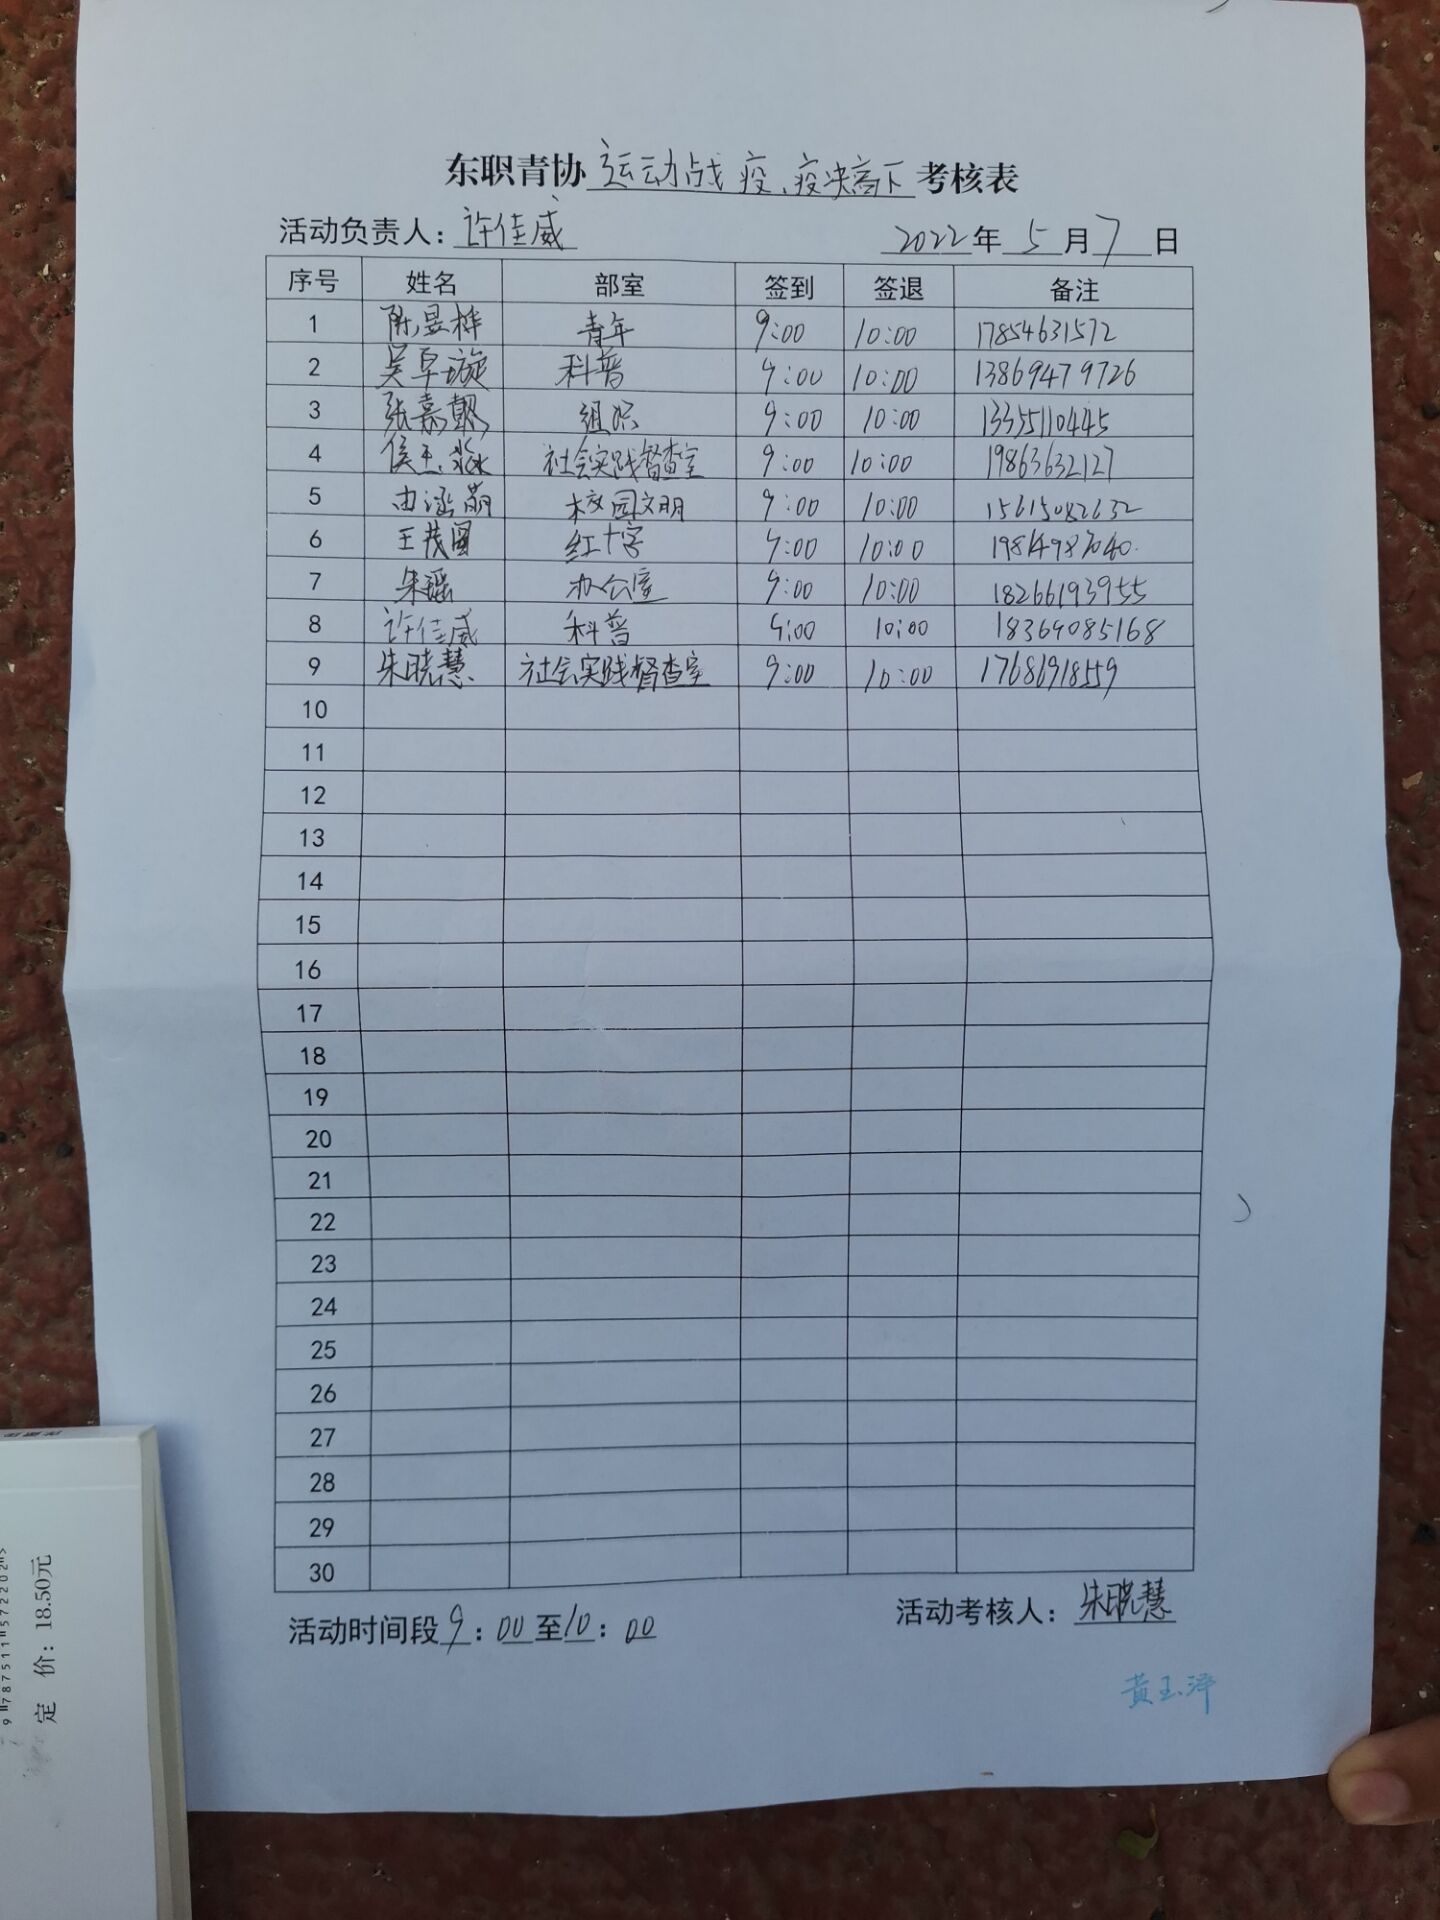 东职青协 运动战疫、疫决高下 考核表
活动负责人：许佳威 2022年 5月 7日
序号 姓名 部室 签到 签退 备注
1 陈昱桦 青年 9:00 10:00 17854631572
2 吴卓璇 科普 9:00 10:00 13869479726
3 张嘉懿 组织 9:00 10:00 13355110445
4 侯玉淼 社会实践督查室 9:00 10:00 19863632127
5 由涵萌 校园文明 9:00 10:00 15615082632
6 王茂圆 红十字 9:00 10:00
7 朱瑶 办公室 9:00 10:00 18266193955
8 许佳威 科普 9:00 10:00 18369085168
9 朱晓慧 社会实践督查室 9:00 10:00 17686918559
10
11
12
13
14
15
16
17
18
19
20
21
22
23
24
25
26
27
28
29
30
活动时间段 9：00至10：00 活动考核人：朱晓慧
黄玉萍
定 价：18.50元